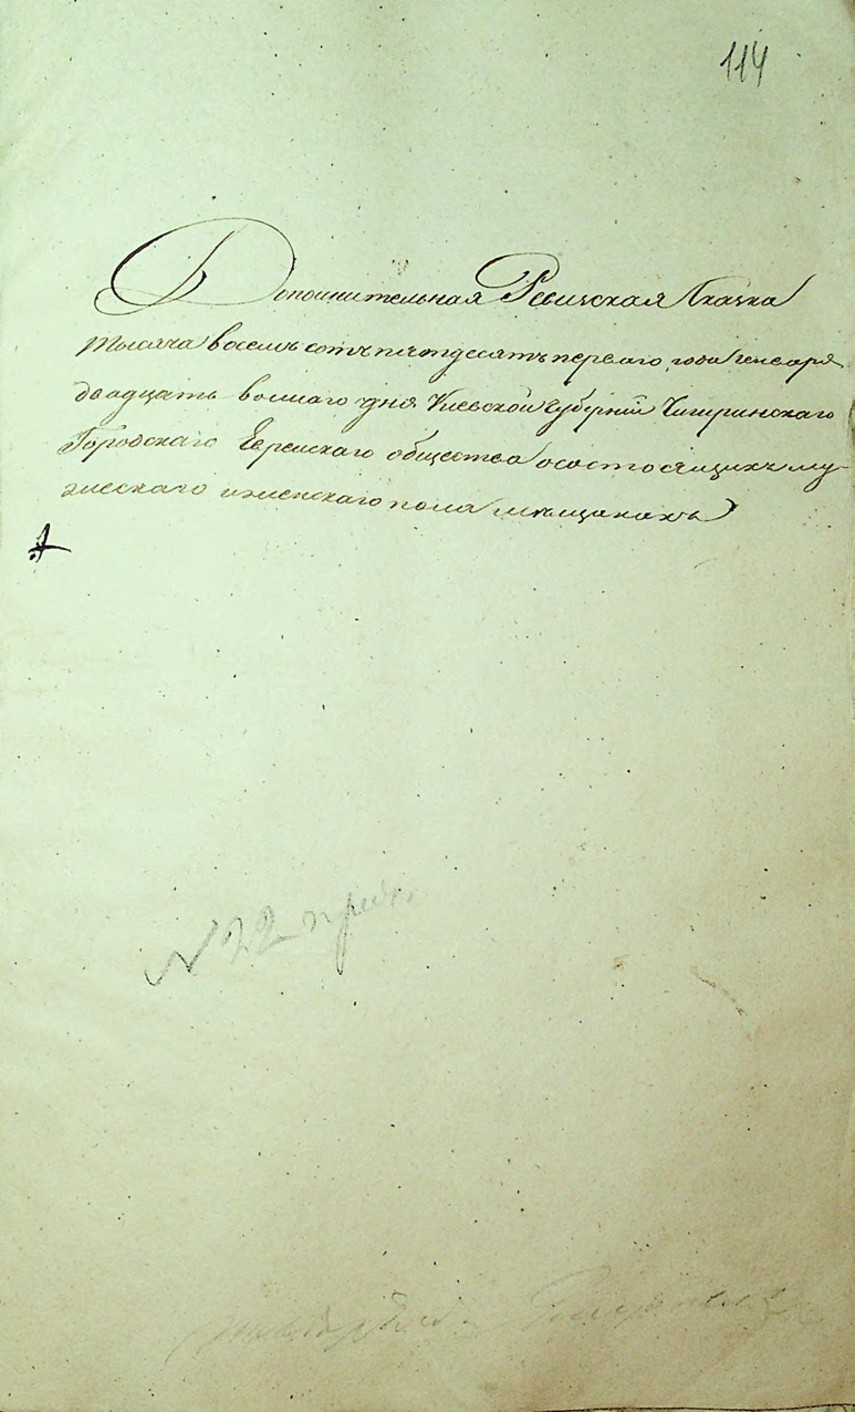 114
Дополнительная Ревизская Сказка
тысяча восемь сотъ пятдесятъ перваго года Генваря
двадцать восмаго дня Киевской Губерніи Чигиринскаго
Городскаго Еврейскаго общества о состоящихъ му-
жескаго и женскаго пола мѣщанахъ
N 22